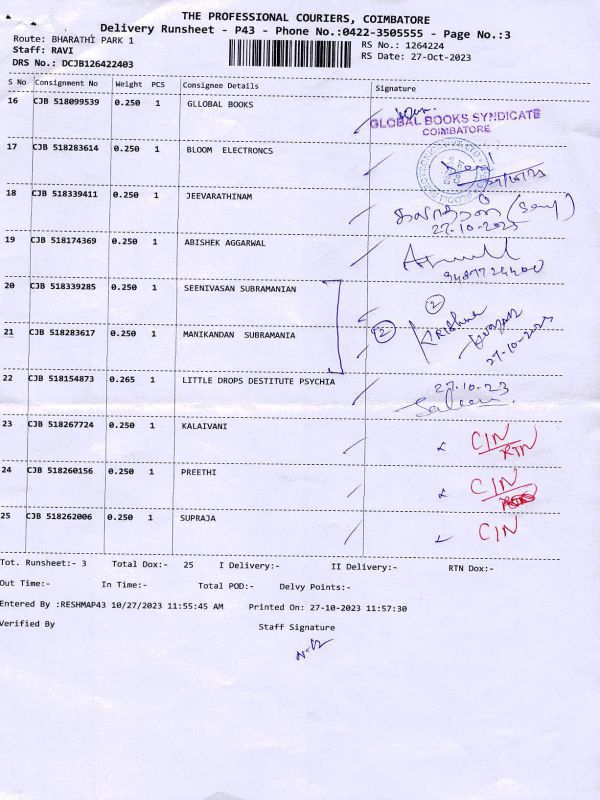 THE PROFESSIONAL COURIERS, COIMBATORE
Delivery Runsheet - P43 - Phone No.:0422-3505555 - Page No.:3
Route: BHARATHI PARK 1
RS No.: 1264224
Staff: RAVI
RS Date: 27-Oct-2023
DRS No.: DCJB126422403
S No Consignment No Weight PCS Consignee Details Signature
16 CJB 518099539 0.250 1 GLLOBAL BOOKS
GLOBAL BOOKS SYNDICATE
COIMBATORE
17 CJB 518283614 0.250 1 BLOOM ELECTRONCS
18 CJB 518339411 0.250 1 JEEVARATHINAM
27.10.2023
19 CJB 518174369 0.250 1 ABISHEK AGGARWAL
20 CJB 518339285 0.250 1 SEENIVASAN SUBRAMANIAN
2
2 Krishna
21 CJB 518283617 0.250 1 MANIKANDAN SUBRAMANIA
27-10-2023
22 CJB 518154873 0.265 1 LITTLE DROPS DESTITUTE PSYCHIA
27.10.23
Saleem
23 CJB 518267724 0.250 1 KALAIVANI
CIN
RTN
24 CJB 518260156 0.250 1 PREETHI
CIN
25 CJB 518262006 0.250 1 SUPRAJA
CIN
Tot. Runsheet:- 3 Total Dox:- 25 I Delivery:- II Delivery:- RTN Dox:-
Out Time:- In Time:- Total POD:- Delvy Points:-
Entered By :RESHMAP43 10/27/2023 11:55:45 AM Printed On: 27-10-2023 11:57:30
Verified By Staff Signature